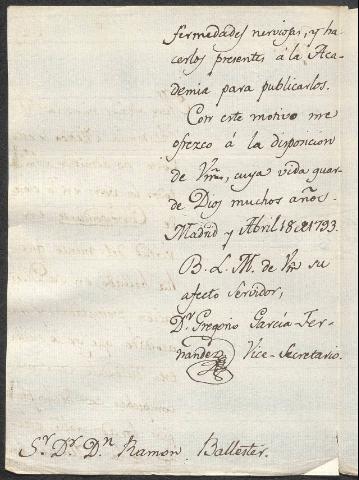 fermedades nerviosas, y ha-
cerlos presentes á la Aca-
demia para publicarlos.
Con este motivo me
ofrezco á la disposicion
de Vm, cuya vida guar-
de Dios muchos años.
Madrid y Abril 18 de 1793.
B. L. M. de Vm su
afecto servidor,
Dr. Gregorio García Fer-
nandez Vice-Secretario.
Sr. Dr. Dn Ramon Ballester.